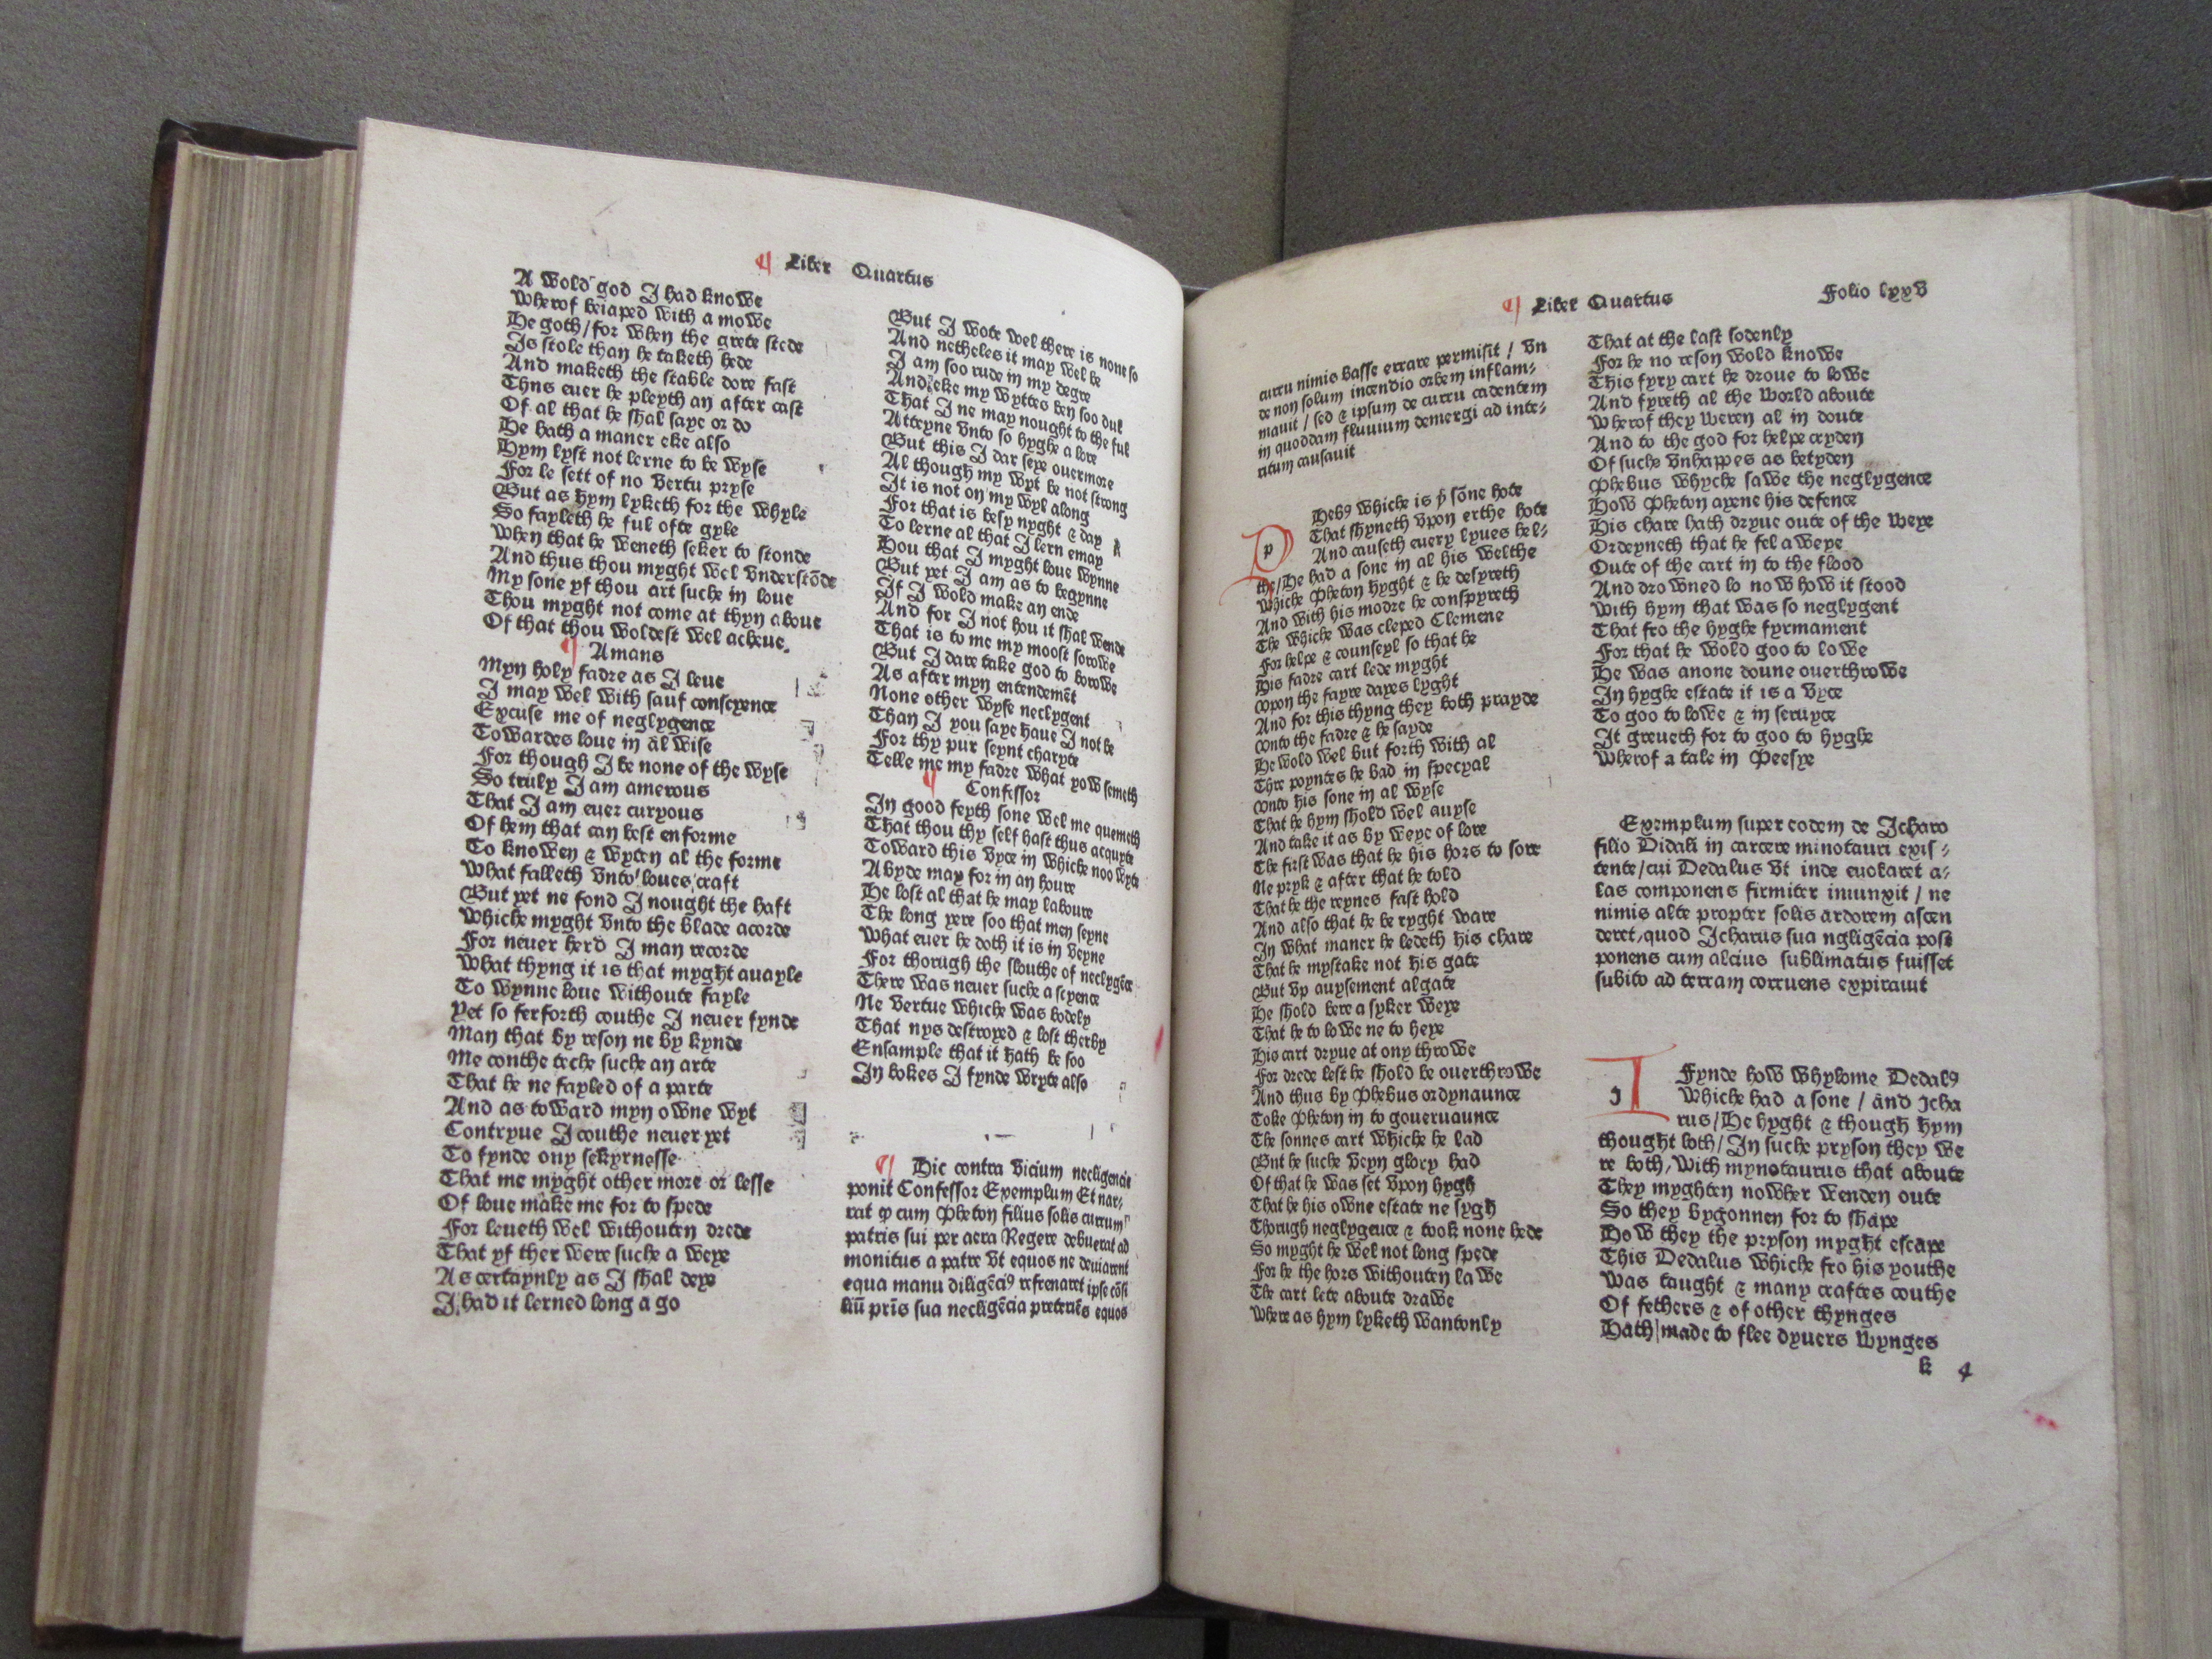 ¶ Liber Quartus
A wold god I had knowe
Wherof beiaped with a mowe
He goth / for when the grete stede
Is stole than he taketh hede
And maketh the stable dore fast
Thns euer he pleyth an after cast
Of al that he shal saye or do
He hath a maner eke also
Hym lyst not lerne to be wyse
For le sett of no vertu pryse
But as hym lyketh for the whyle
So fayleth he ful ofte gyle
When that he weneth seker to stonde
And thus thou myght wel vnderstōde
My sone yf thou art suche in loue
Thou myght not come at thyn aboue
Of that thou woldest wel acheue.
¶ Amans
Myn holy fadre as I leue
I may wel with sauf conscyence
Excuse me of neglygence
Towardes loue in al wise
For though I be none of the wyse
So truly I am amerous
That I am euer curyous
Of hem that can best enforme
To knowen & wyten al the forme
What falleth vnto loues craft
But yet ne fond I nought the haft
Whiche myght vnto the blade acorde
For neuer herd I man recorde
What thyng it is that myght auayle
To wynne loue withoute fayle
Yet so ferforth couthe I neuer fynde
Man that by reson ne by kynde
Me conthe teche suche an arte
That he ne fayled of a parte
And as toward myn owne wyt
Contryue I couthe neuer yet
To fynde ony sekyrnesse
That me myght other more or lesse
Of loue make me for to spede
For leueth wel withouten drede
That yf ther were suche a weye
As certaynly as I shal deye
I had it lerned long a go
But I wote wel there is none so
And netheles it may wel be
I am soo rude in my degre
And eke my wyttes ben soo dul
That I ne may nought to the ful
Atteyne vnto so hyghe a lore
But this I dar seye ouermore
Al though my wyt be not strong
It is not on my wyl along
For that is besy nyght & day
To lerne al that I lern emay
Hou that I myght loue wynne
But yet I am as to begynne
If I wold make an ende
And for I not hou it shal wende
That is to me my moost sorowe
But I dare take god to borowe
As after myn entendemēt
None other wyse neclygent
Than I you saye haue I not be
For thy pur seynt charyte
Telle me my fadre what yow semeth
¶ Confessor
In good feyth sone wel me quemeth
That thou thy self hast thus acquyte
Toward this vyce in whiche noo wyte
Abyde may for in an houre
He lost al that he may laboure
The long yere soo that men seyne
What euer he doth it is in veyne
For thorugh the slouthe of neclygēce
There was neuer suche a scyence
Ne vertue whiche was bodely
That nys destroyed & lost therby
Ensample that it hath be soo
In bokes I fynde wryte also
¶ Hic contra vicium necligencie
ponit Confessor Exemplum Et nar,
rat ꝙ cum Pheton filius solis currum
patris sui per aera Regere debuerat ad
monitus a patre vt equos ne deuiarent
equa manu diligēciꝰ refrenaret ipse cōsi
liū pr̄is sua necligēcia preteriēs equos
¶ Liber Quartus
Folio lxxv
curru nimis basse errare permisit / vn
de non solum incendio orbem inflam-
mauit / sed & ipsum de curru cadentem
in quoddam fluuium demergi ad inte-
ritum causauit
p Hebꝰ whiche is þͤ sōne hote
That shyneth vpon erthe hote
And causeth euery lyues hel-
the / He had a sone in al his welthe
Whiche Pheton hyght & he desyreth
And with his modre he conspyreth
The whiche was cleped Clemene
For helpe & counseyl so that he
His fadre cart lede myght
Vpon the fayre dayes lyght
And for this thyng they both prayde
Vnto the fadre & he sayde
He wold wel but forth with al
Thre poyntes he bad in specyal
Vnto his sone in al wyse
That he hym shold wel auyse
And take it as by weye of lore
The first was that he his hors to sore
Ne pryk & after that he told
That he the reynes fast hold
And also that he be ryght ware
In what maner he ledeth his chare
That he mystake not his gate
But vp auysement algate
He shold bere a syker weye
That he to lowe ne to heye
His cart dryue at ony throwe
For drede lest he shold be ouerthrowe
And thus by Phebus ordynaunce
Toke Pheton in to goueruaunce
The sonnes cart whiche he lad
But he suche veyn glory had
Of that he was set vpon hygh
That he his owne estate ne sygh
Thorugh neglygence & took none hede
So myght he wel not long spede
For he the hors withouten lawe
The cart lete aboute drawe
Where as hym lyketh wantonly
That at the last sodenly
For he no reson wold knowe
This fyry cart he droue to lowe
And fyreth al the world aboute
Wherof they weren al in doute
And to the god for helpe cryden
Of suche vnhappes as betyden
Phebus whyche sawe the neglygence
How Pheton ayene his defence
His chare hath dryue oute of the weye
Ordeyneth that he fel aweye
Oute of the cart in to the flood
And drowned lo now how it stood
With hym that was so neglygent
That fro the hyghe fyrmament
For that he wold goo to lowe
He was anone doune ouerthrowe
In hyghe estate it is a vyce
To goo to lowe & in seruyce
It greueth for to goo to hyghe
Wherof a tale in Peesye
Exemplum super eodem de Icharo
filio Didali in carcere minotauri exis-
tente / cui Dedalus vt inde euolaret a-
las componens firmiter iniunxit / ne
nimis alte propter solis ardorem ascen
deret, quod Icharus sua ngligēcia post
ponens cum alcius sublimatus fuisset
subito ad terram corruens expirauit
J Fynde how whylome Dedalꝰ
Whiche had a sone / and Icha
rus / He hyght & though hym
thought loth / In suche pryson they we
re both, With mynotaurus that aboute
They myghten nowher wenden oute
So they bygonnen for to shape
How they the pryson myght escape
This Dedalus whiche fro his youthe
Was taught & many craftes couthe
Of fethers & of other thynges
Hath made to flee dyuers wynges
k 4